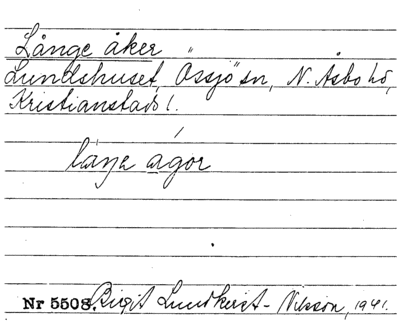 Långe åker
Lundshuset, Össjö sn, N. Åsbo hd,
Kristianstads l.
låna agor
Nr 5508. Birgit Lundkvist-Nilsson, 1941.